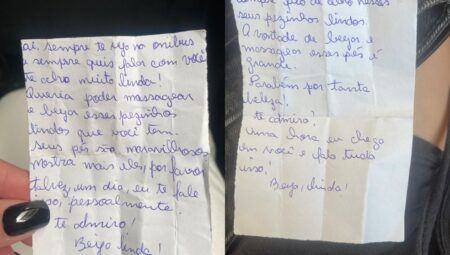 oi, sempre te vejo no ônibus
e sempre quis falar com você
te acho muito linda!
Queria poder massagear
e beijar esses pezinhos
lindos que você tem.
Seus pés são maravilhosos
mostra mais eles, por favor
talvez, um dia, eu te fale
isso, pessoalmente.
te admiro!
Beijo linda!
sempre de olho nesses
seus pezinhos lindos.
A vontade de beijar e
massagear esses pés é
grande.
Parabém por tanta
beleza!
te admiro!
Uma hora eu chego
em você e falo tudo
isso!
Beijo, linda!